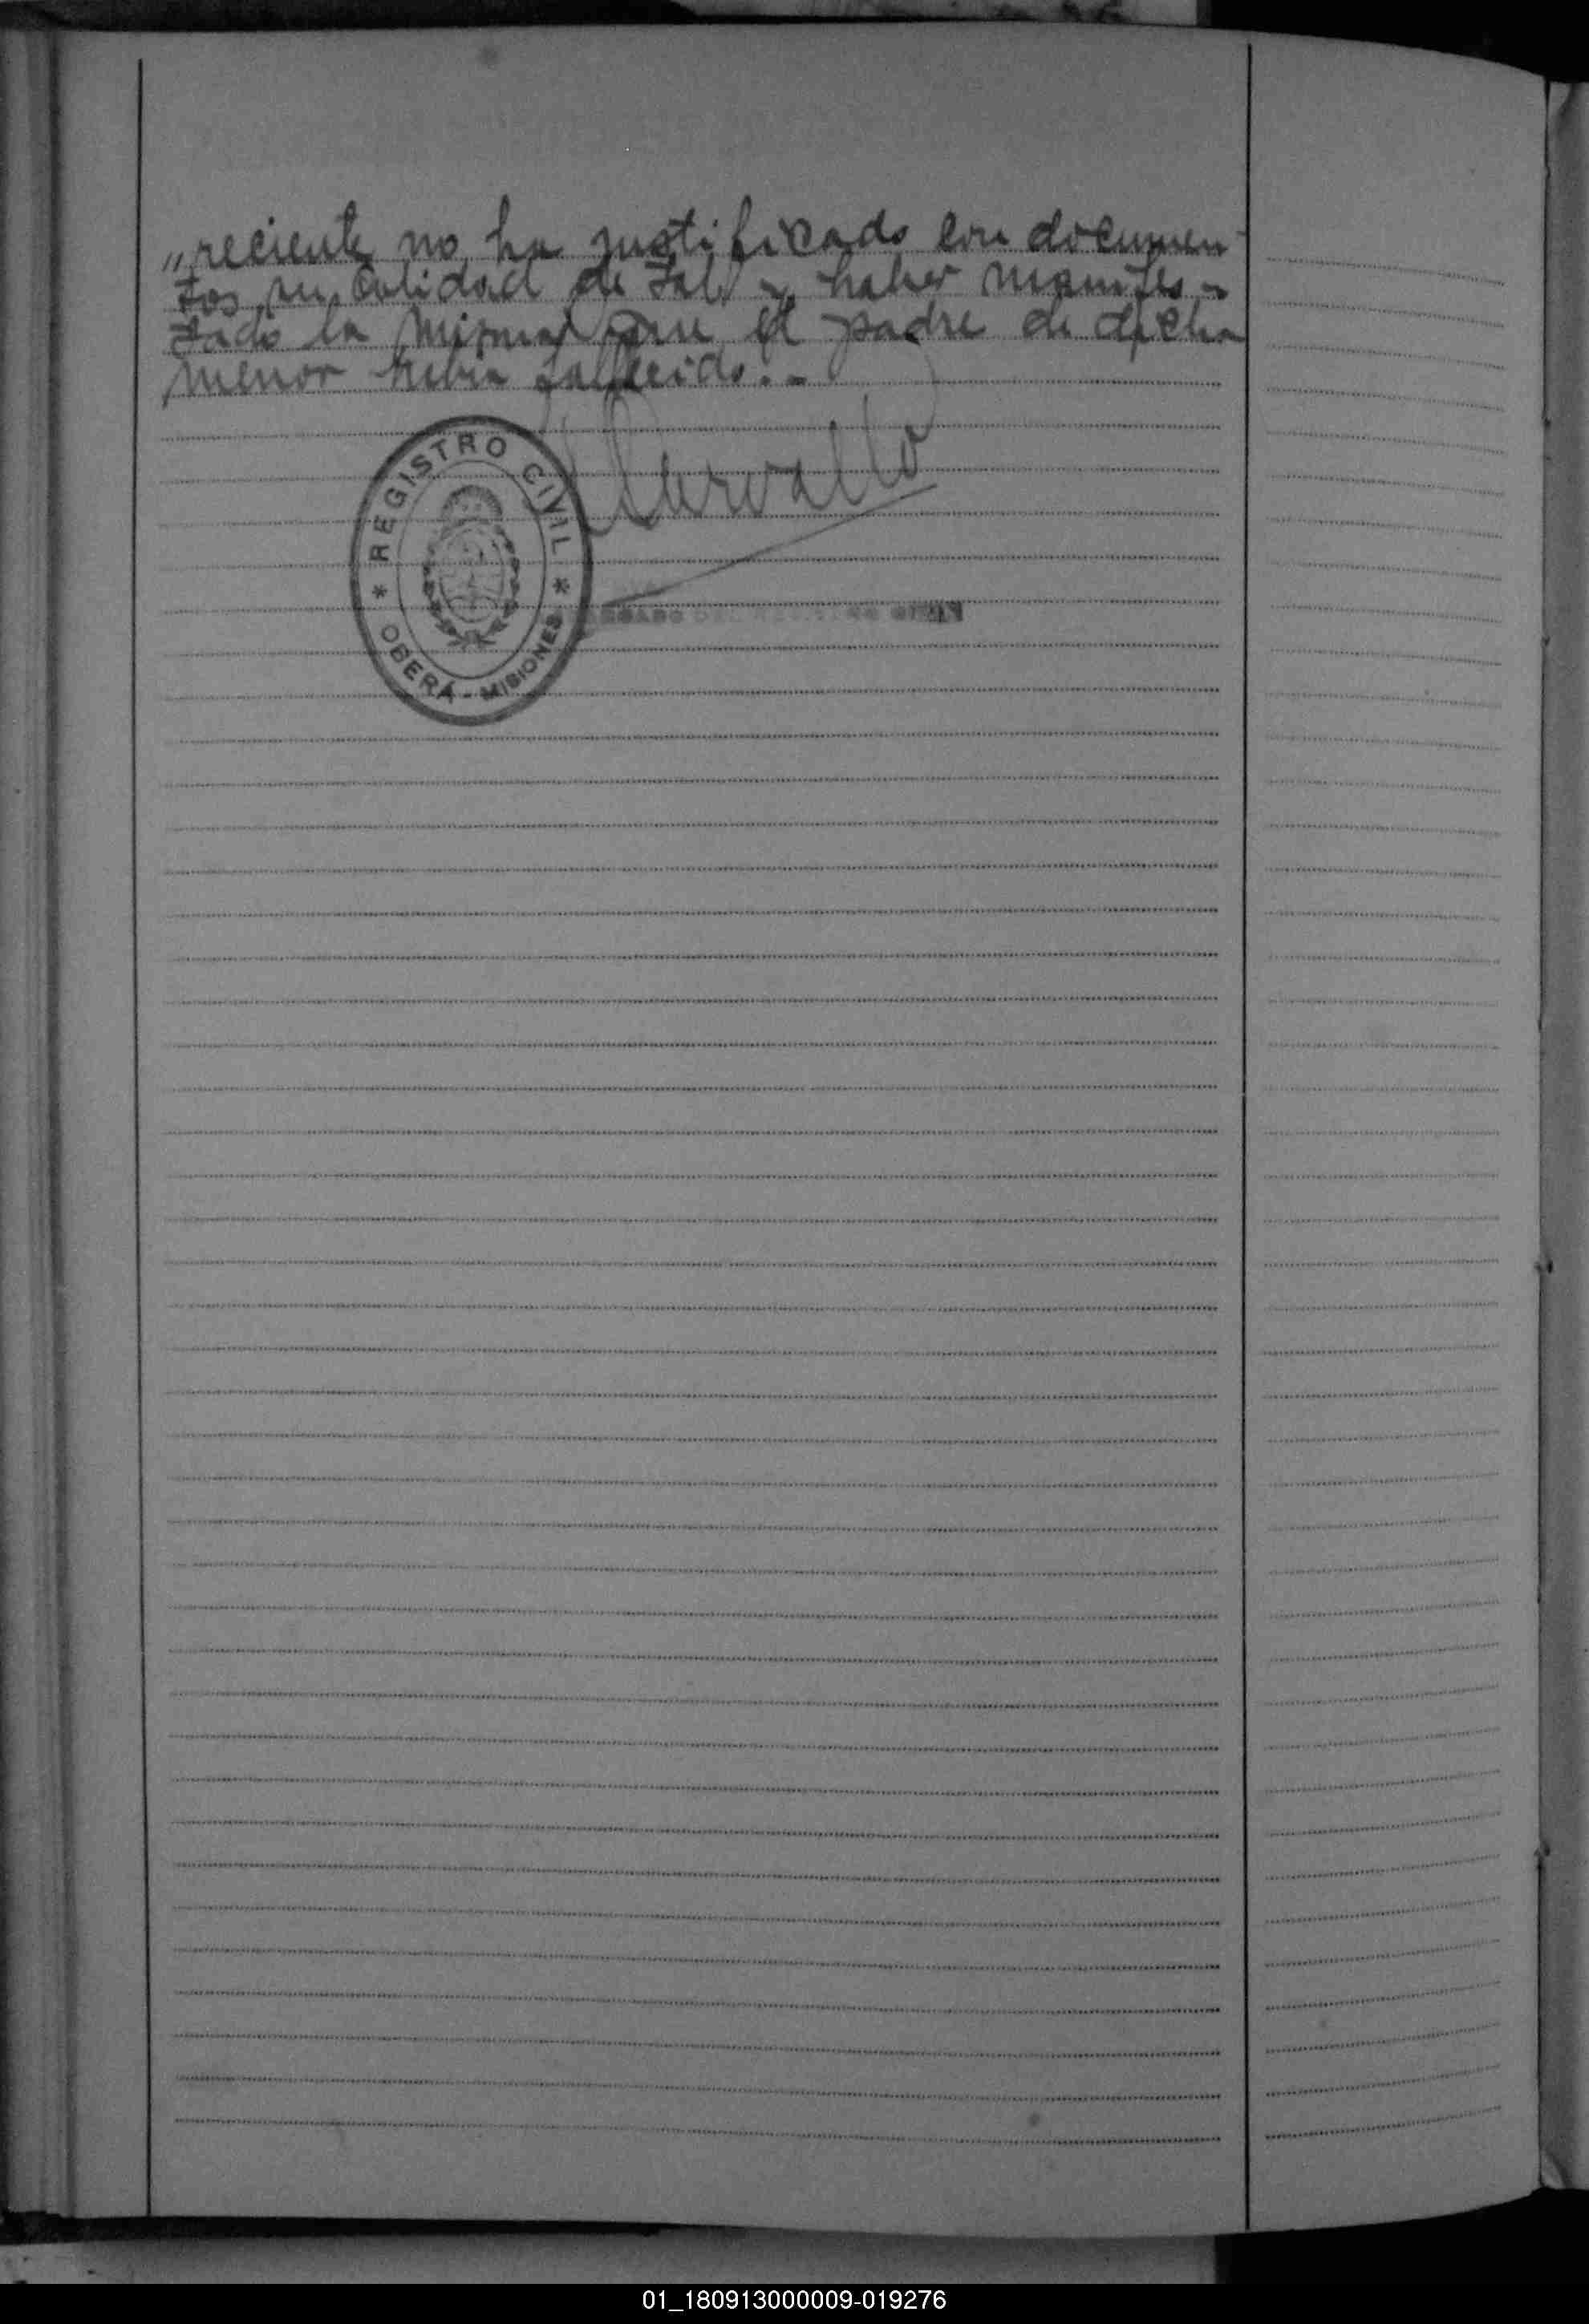 „reciente no ha justificado con documen-
tos su calidad de tal y haber manifes-
tado la misma que el padre de dicha
menor había fallecido.-
Carvallo
REGISTRO CIVIL
* OBERÁ - MISIONES *
01_180913000009-019276